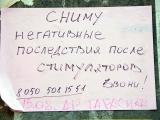 СНИМУ
НЕГАТИВНЫЕ
ПОСЛЕДСТВИЯ ПОСЛЕ
СТИМУЛЯТОРОВ
ЗВОНИ!
8 050 501 15 51